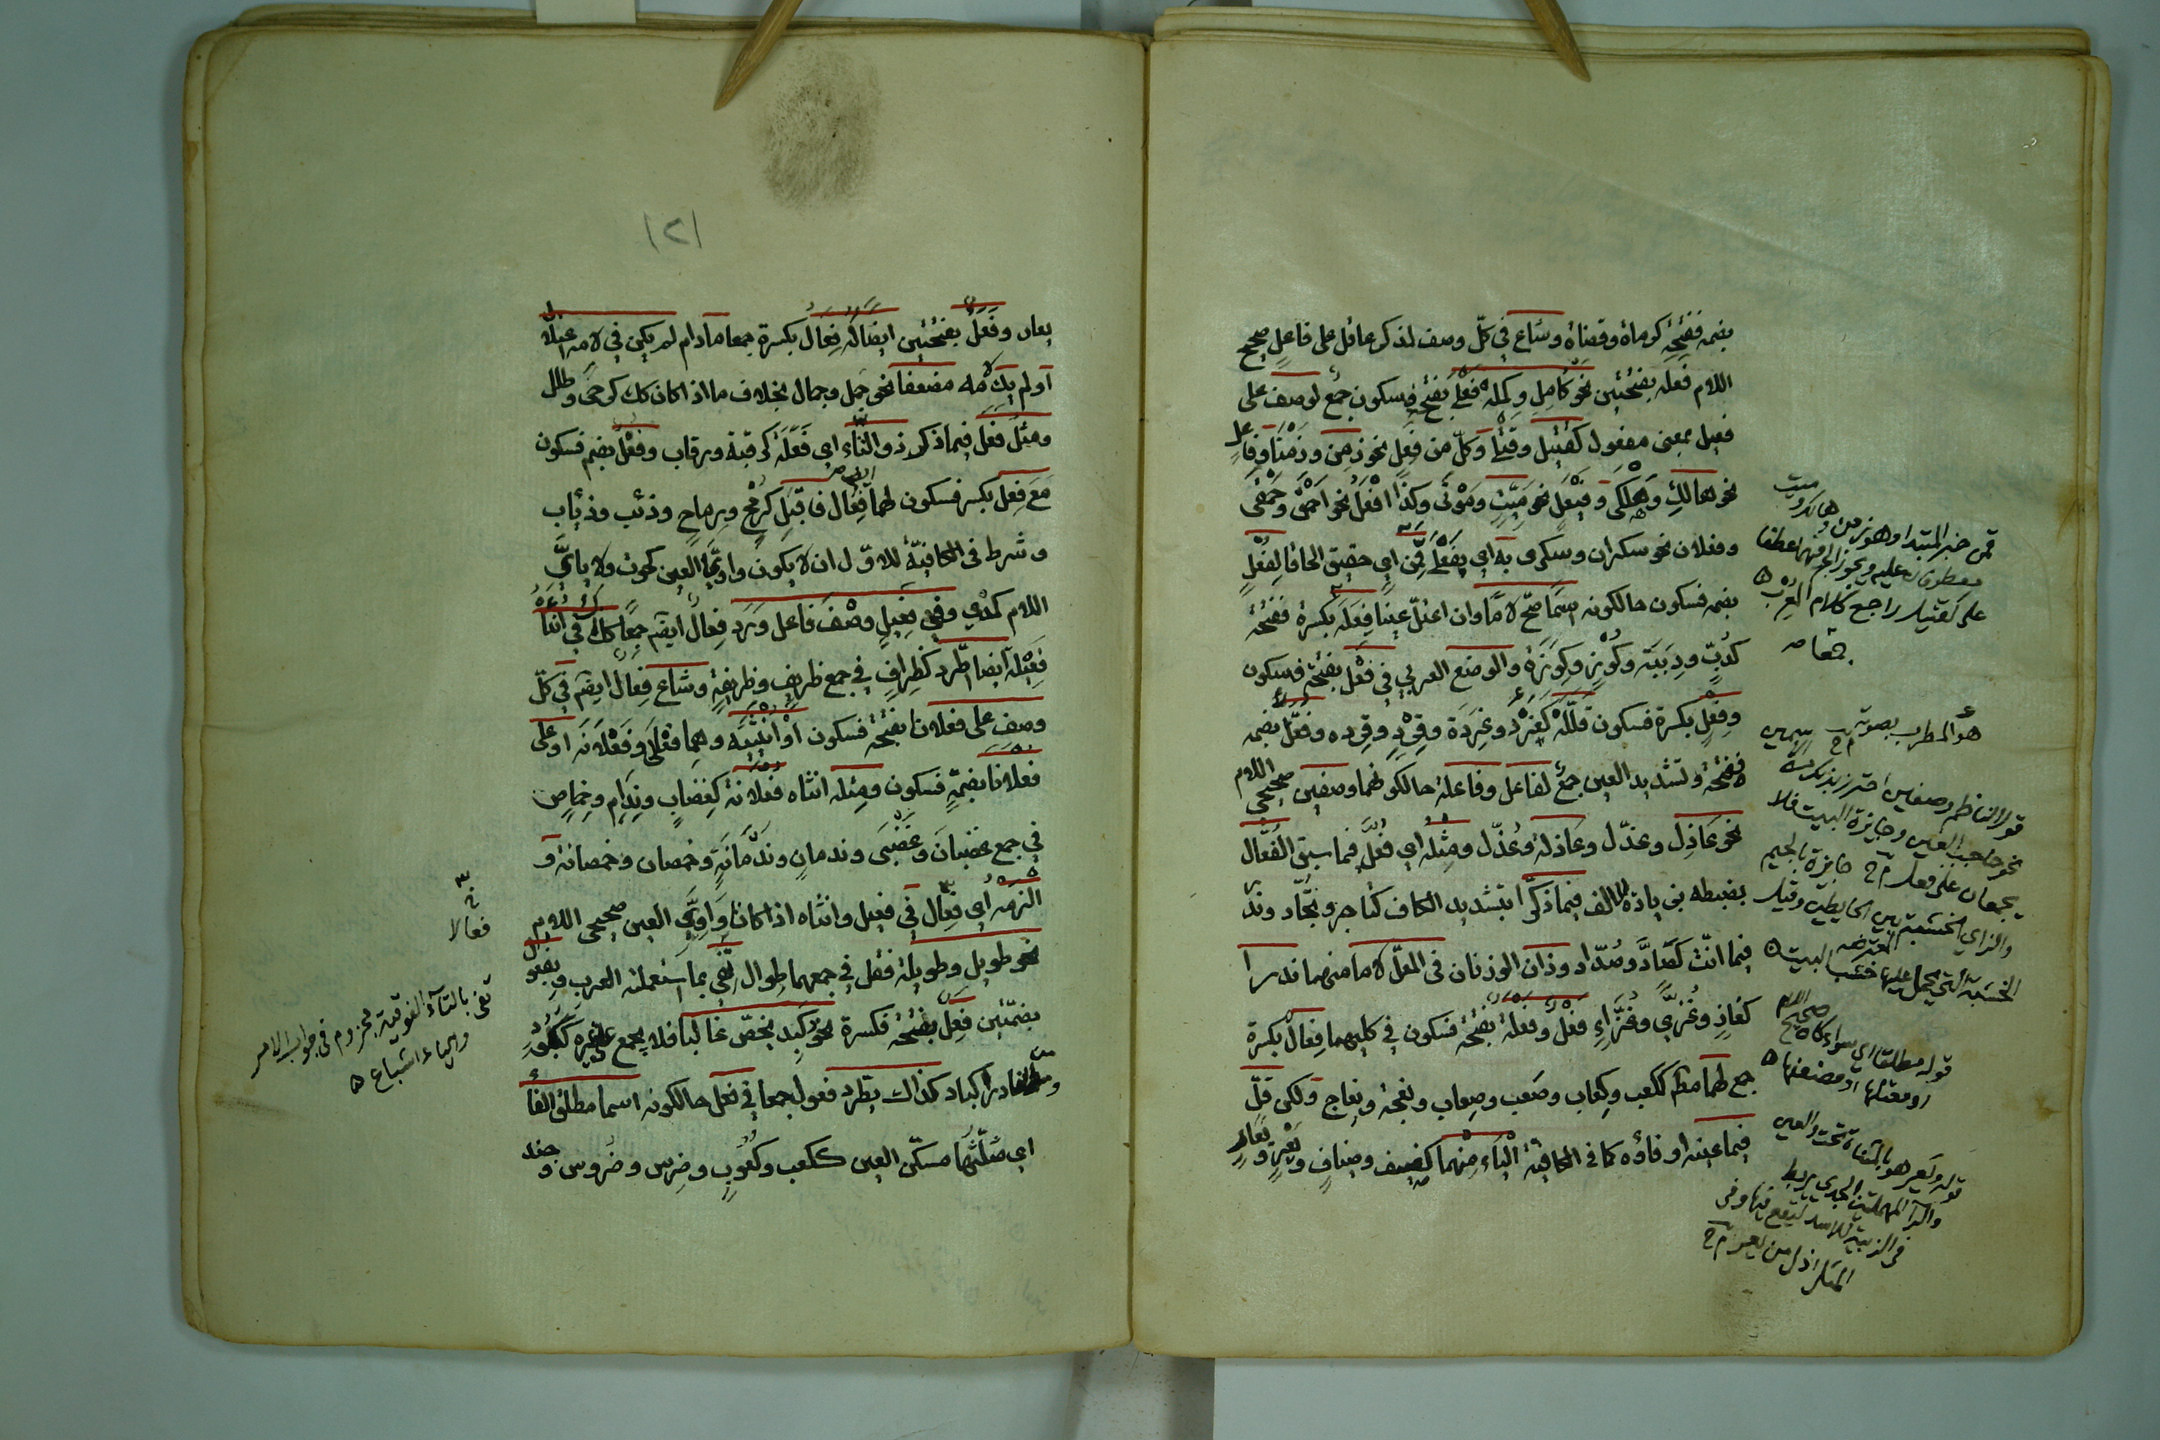 بضمه ففتحة كرماة وقضاة وشاع في كل وصف لمذكر عاقل على فاعل صحيح
اللام فعله بفتحتين نحو كامل وكمله فعلى بفتح فسكون جمع لوصف على
فعيل بمعنى مفعول كقتيل وقتلى وكل من فعل نحو زمن وزمنى وفاعل
نحو هالك وهلكى وفيعل نحو ميت وموتى وكذا افعل نحو احمق وحمقى
وفعلان نحو سكران وسكرى به اي بفعلى قمن اي حقيق الحاقا لفعل
بضمه فسكون حالكونه اسما صح لاما وان اعتل عينا فعله بكسرة ففتحة
كدب ودببة وكوز وكوزة والوضع العربي في فعل بفتحة فسكون
وفعل بكسرة فسكون قلله كغرد وغردة وقرد وقرده وفعل بضمه
ففتحة وتشديد العين جمع لفاعل وفاعلة حالكونهما وصفين صحيحي اللام
نحو عاذل وعذل وعاذلة وعذل ومثله اي فعل فيما سبق الفعال
بضبطه بزيادة الالف فيما ذكرا بتشديد الكاف كتاجر وتجار وندر
فيما انث كصاد وصداد وذان الوزنان في المعل لاما منهما ندرا
كغاز وغزي وغزاء فعل وفعلة بفتحة فسكون في كليهما فعال بكسرة
جمع لهما مطرد ككعب وكعاب وصعب وصعاب ونعجة ونعاج ولكن قل
فيما عينه او فاؤه كما في الكافية الياء منهما كضيف وضياف ويعر ويعار
ميت
قمن خبر المبتدا وهو زمن وهالك و
معطوفان عليه ويجوز الجر فيها عطفا
على كقتيل راجع كلام المعرب
هو المطرب بصوته
قول الناظم وصفين احترز بذكره
نحو حاجب العين وجايزة البيت فلا
يجمعان على فعل جايزة بالجيم
والزاي الخشبة بين الحايطين وقيل
الخشبة التي تحمل عليها خشب البيت
قوله مطلقا اي سواء كان صحيح اللام
او معتلها او مضعفها
قوله ويعر هو بالمثناة تحت والعين
والراء المهملتين الجدي يربط
في الزبية للاسد ليقع فيها وفي
المثل اذل من يعر
١٢١
يعار وفعل بفتحتين ايضا له فعال بكسرة جمعا ما دام لم يكن في لامه اعتلال
او لم يك لامه مضعفا نحو جمل وجمال بخلاف ما اذا كان كذلك كرحى وطلل
ومثل فعل فيما ذكر ذو التاء اي فعلة كرقبة ورقاب وفعل بضم فسكون
مع فعل بكسر فسكون لهما فعال فاقبل كرمح ورماح وذئب وذئاب
وشرط في الكافية للاول ان لا يكون واوي العين كحوت ولا يائي
اللام كمدي وفي فعيل وصف فاعل ورد فعال ايضا جمعا كذاك في انثاه
فعيلة ايضا اطرد كظراف في جمع ظريف وظريفة وشاع فعال ايضا في كل
وصف على فعلانا بفتحة فسكون او انثييه وهما فعلى وفعلانه او على
فعلانا بضمة فسكون ومثله انثاه فعلانة كغضاب وندام وخماص
في جمع غضبان وغضبى وندمان وندمانة وخمصان وخمصانة و
الزمه اي فعال في فعيل وانثاه اذا كانا واوي العين صحيحي اللام
نحو طويل وطويلة فقل في جمعهما طوال تفي بما استعملته العرب وبفعول
بضمتين فعل بفتحة فكسرة نحو كبد يخص غالبا فلا يجمع على غيره ككبود
ومن النادر اكباد كذاك يطرد فعول جمعا في فعل حالكونه اسما مطلق الفا
اي مثلثها مسكن العين ككعب وكعوب وضرس وضروس وجند
فعالا
تفي بالتاء الفوقية مجزوم في جواب الامر
والياء اشباع